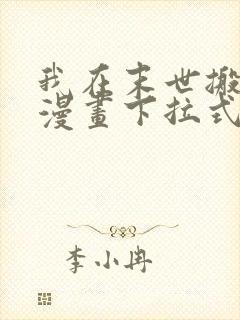 我在末世搬
漫畫下拉式
李小冉